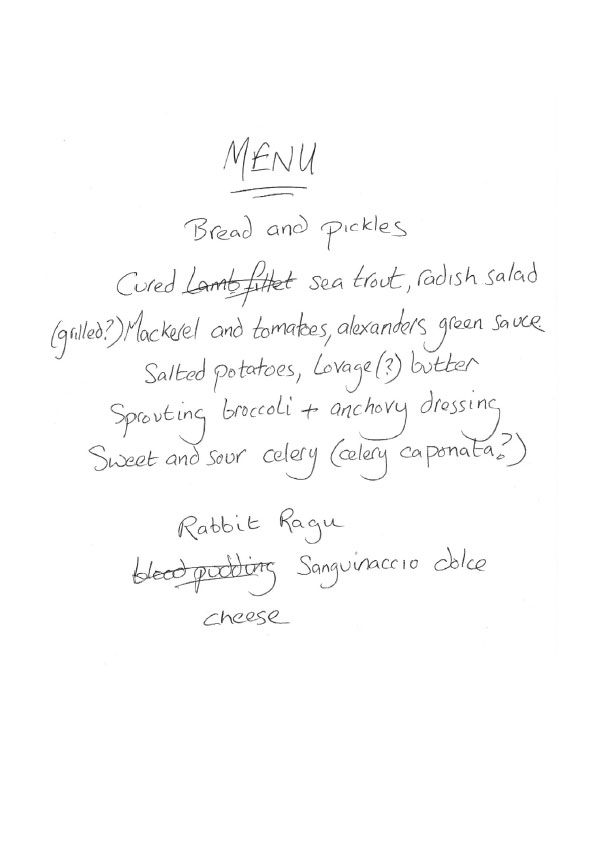 MENU
Bread and pickles
Cured Lamb fillet sea trout, radish salad
(grilled?) Mackerel and tomatoes, alexanders green sauce.
Salted potatoes, Lovage(?) butter
Sprouting broccoli + anchovy dressing
Sweet and sour celery (celery caponata?)
Rabbit Ragu
blood pudding Sanguinaccio dolce
cheese